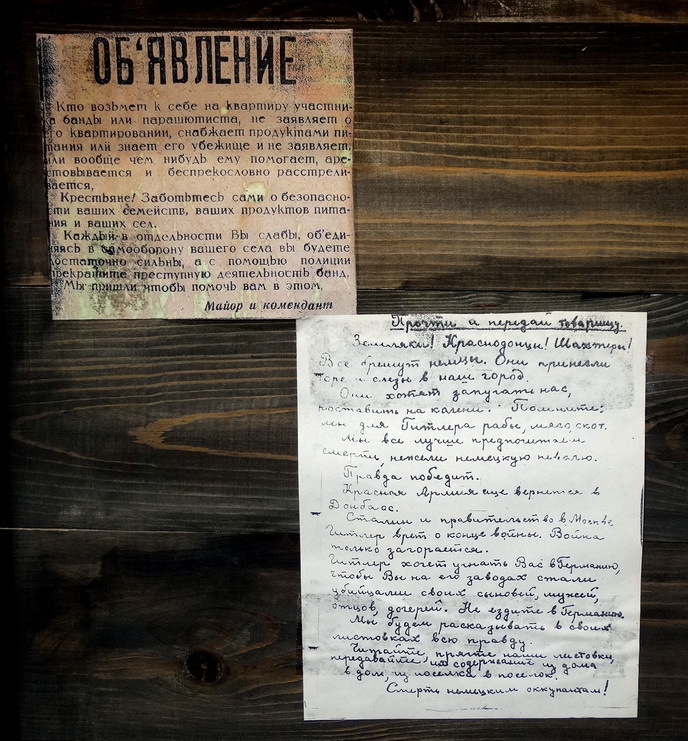 ОБ'ЯВЛЕНИЕ
Кто возьмет к себе на квартиру участни-
ка банды или парашютиста, не заявляет о
его квартировании, снабжает продуктами пи-
тания или знает его убежище и не заявляет,
или вообще чем нибудь ему помогает, аре-
стовывается и беспрекословно расстрели-
вается,
Крестьяне! Заботьтесь сами о безопасно-
сти ваших семейств, ваших продуктов пита-
ния и ваших сел.
Каждый в отдельности Вы слабы, об'еди-
няясь в самооборону вашего села вы будете
достаточно сильны, а с помощью полиции
прекратите преступную деятельность банд.
Мы пришли чтобы помочь вам в этом.
Майор и комендант
Прочти и передай товарищу.
Земляки! Краснодонцы! Шахтеры!
Все брешут немцы. Они принесли
горе и слезы в наш город.
Они хотят запугать нас,
поставить на колени. Помните:
мы для Гитлера рабы, мясо, скот.
Мы все лучше предпочитаем
смерть, нежели немецкую неволю.
Правда победит.
Красная Армия еще вернется в
Донбасс.
Сталин и правительство в Москве.
Гитлер врет о конце войны. Война
только загорается.
Гитлер хочет угнать Вас в Германию,
чтобы Вы на его заводах стали
убийцами своих сыновей, мужей,
отцов, дочерей. Не ездите в Германию.
Мы будем рассказывать в своих
листовках всю правду
Читайте, прячте наши листовки,
передавайте их содержание из дома
в дом, из поселка в поселок.
Смерть немецким оккупантам!